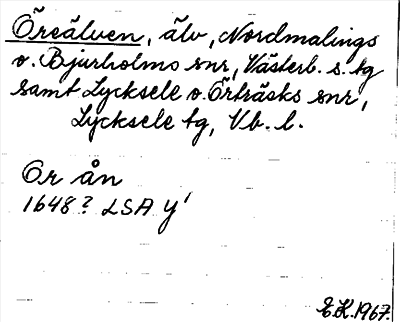 Öreälven, älv, Nordmalings
o. Bjurholms snr, Västerb. s. tg
samt Lycksele o. Örträsks snr,
Lycksele tg, Vb. l.
Or ån
1648? LSA Y'
E.K. 1967.